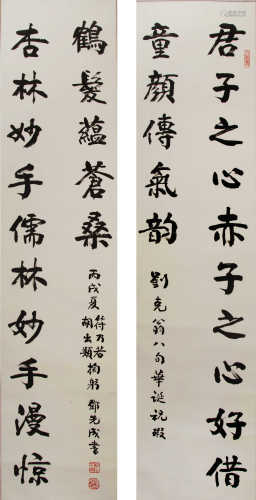 君子之心赤子之心好借
童顏傳氣韵
劉克翁八旬華誕祝嘏
杏林妙手儒林妙手漫惊
鶴髮蘊蒼桑
丙戌夏
符乃若
胡出類
鄧先成書